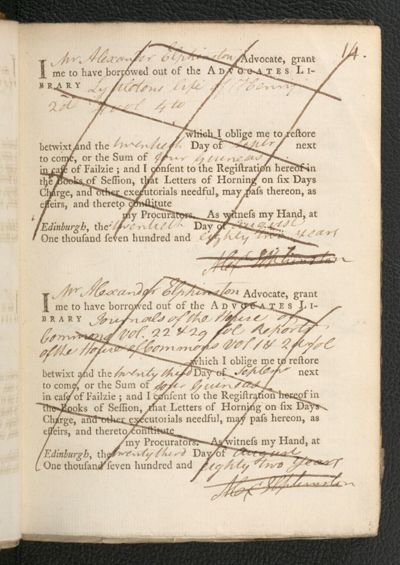 14.
I Mr Alexander Elphinston Advocate, grant
me to have borrowed out of the ADVOCATES LI-
BRARY Lyttletons life of Henry
2d vol 4to
which I oblige me to restore
betwixt and the twentieth Day of next
to come, or the Sum of four guineas
in case of Failzie; and I consent to the Registration hereof in
the Books of Session, that Letters of Horning on six Days
Charge, and other executorials needful, may pass thereon, as
effeirs, and thereto constitute
my Procurators. As witness my Hand, at
Edinburgh, the twentieth Day of august
One thousand seven hundred and eighty two years
Alex Elphinston
I Mr Alexander Elphinston Advocate, grant
me to have borrowed out of the ADVOCATES LI-
BRARY Journals of the House of
Commons Vol. 22 & 29 fol Reports
of the House of Commons Vol 1 & 2d fol
which I oblige me to restore
betwixt and the twenty third Day of Septem next
to come, or the Sum of four Guineas
in case of Failzie; and I consent to the Registration hereof in
the Books of Session, that Letters of Horning on six Days
Charge, and other executorials needful, may pass hereon, as
effeirs, and thereto constitute
my Procurators. As witness my Hand, at
Edinburgh, the twenty third Day of august
One thousand seven hundred and eighty two years
Alex Elphinston